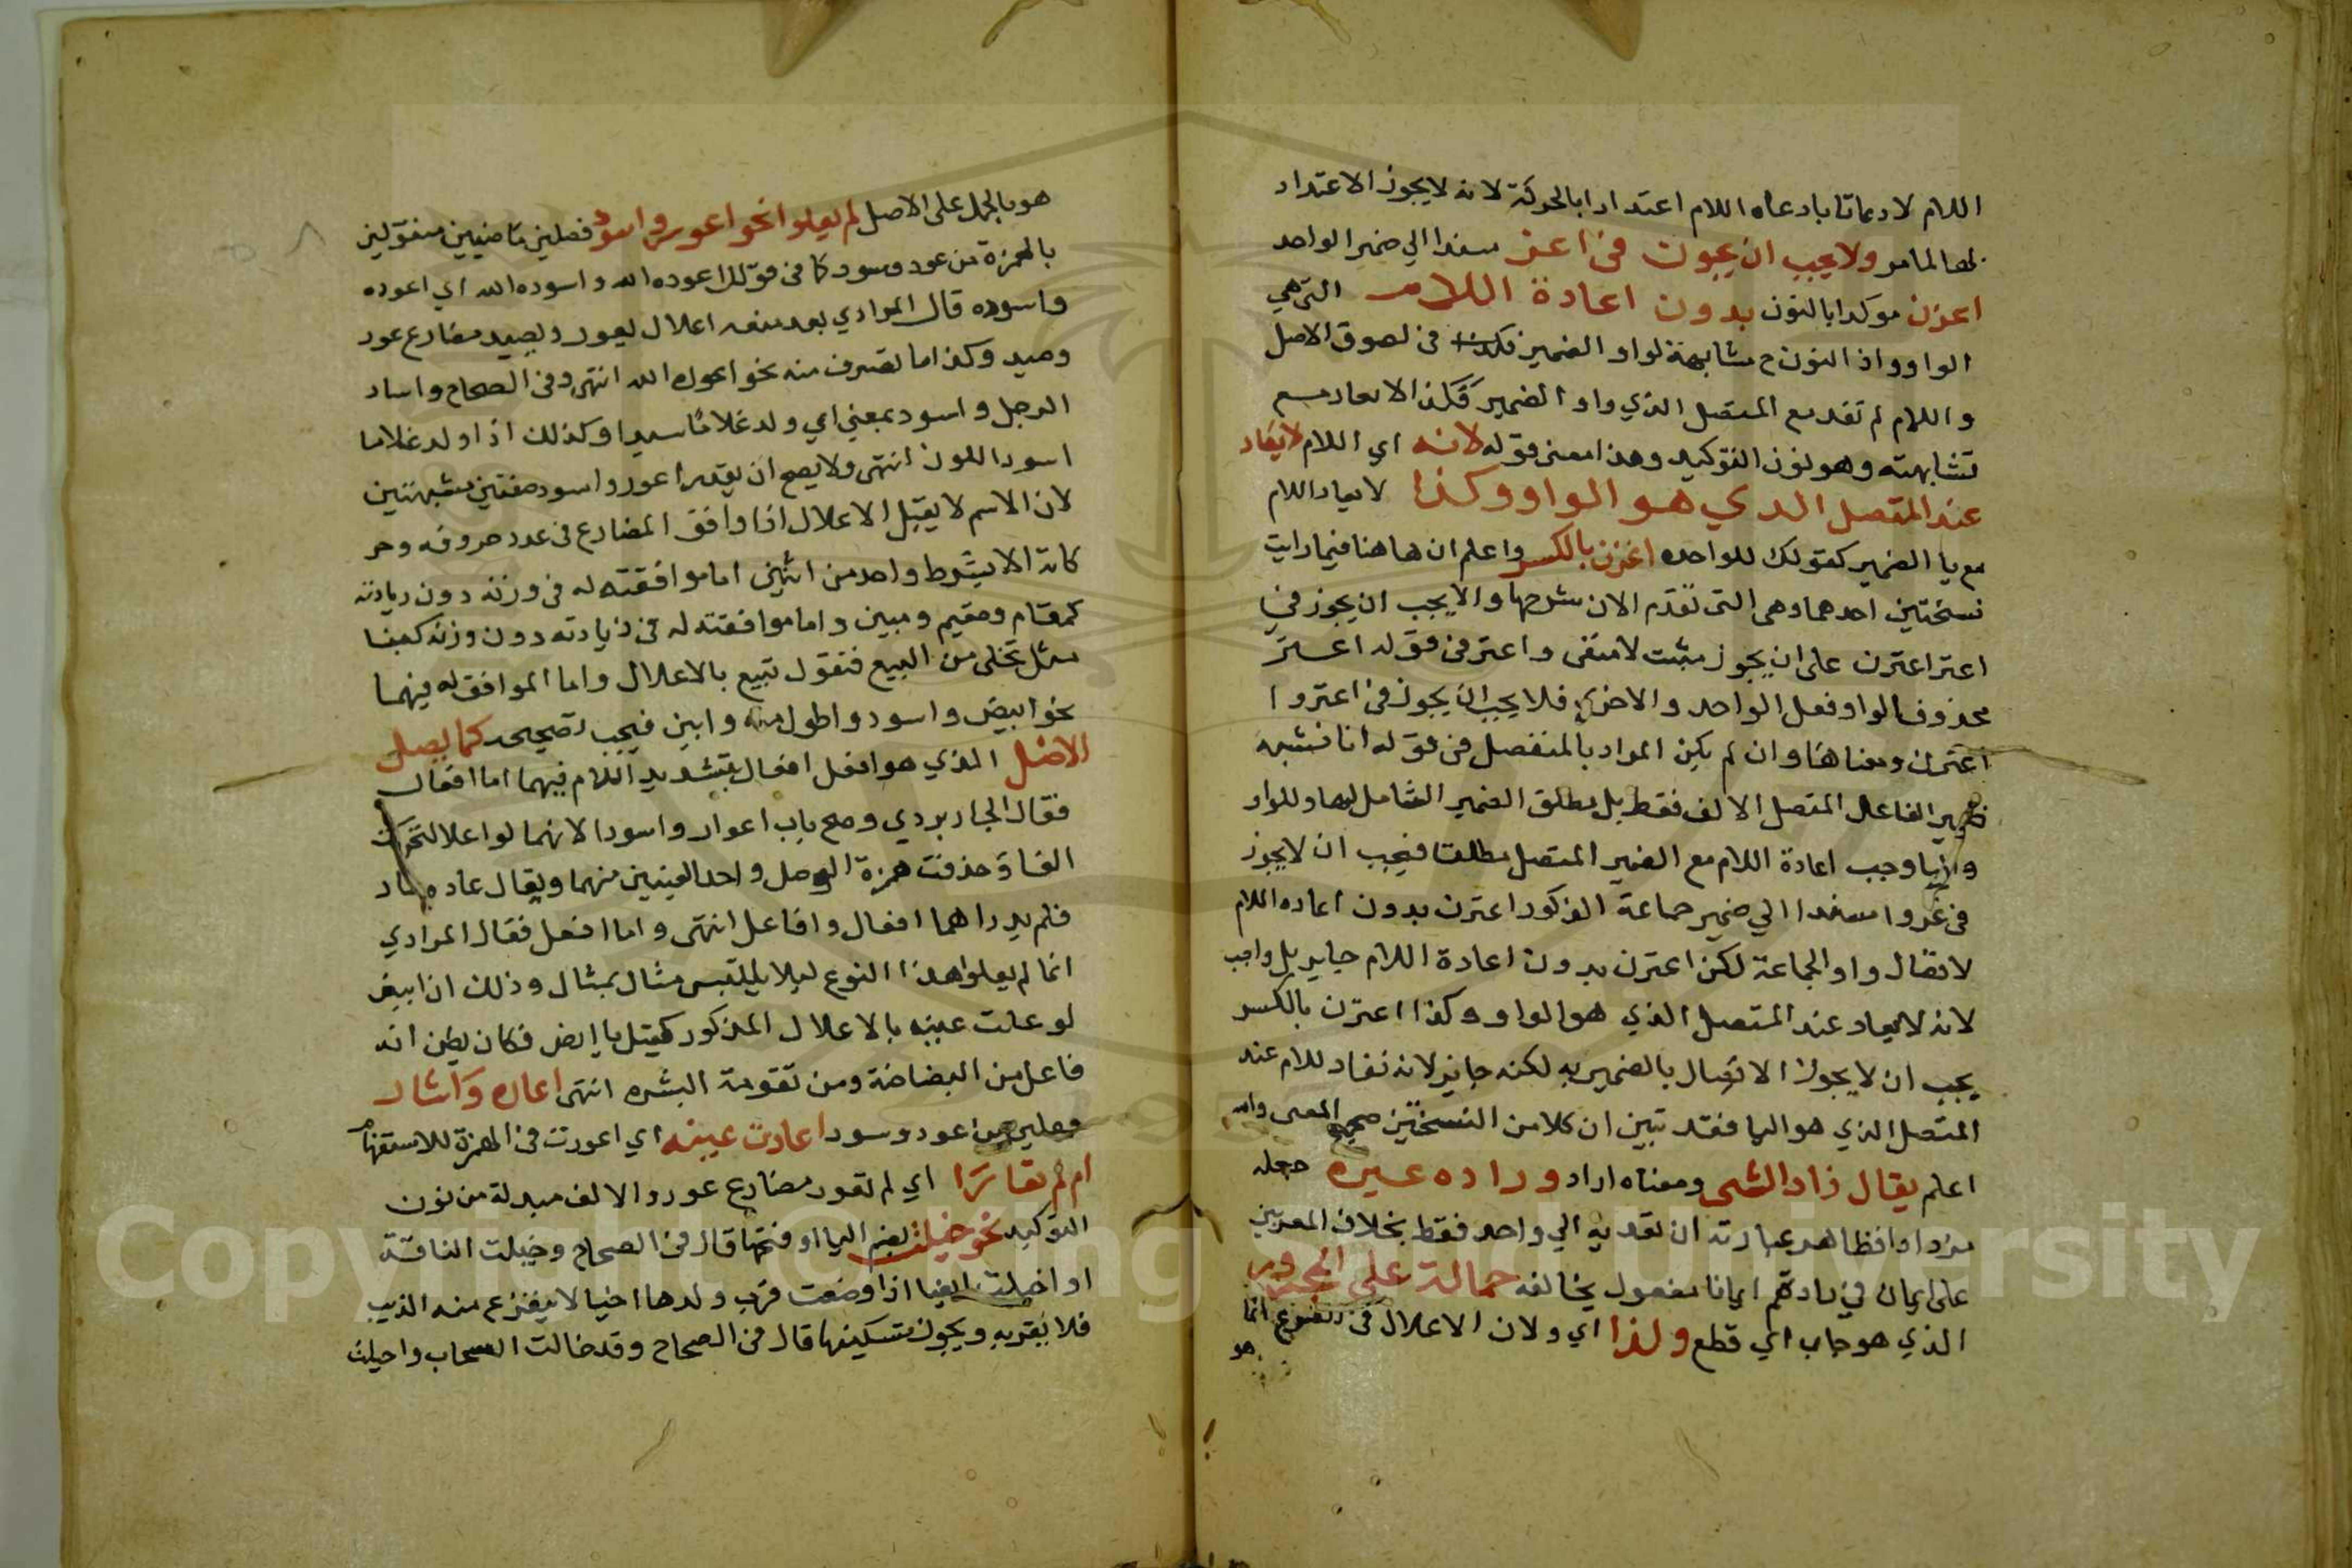 اللام لا دعاتا بادعاه اللام اعتدادا بالحركة لانه لا يجوز الاعتداد
لها لما مر ولا يجب ان يجوت في اعز مسندا الي ضمير الواحد
اعزن موكدا بالنون بدون اعادة اللام التي هي
الواو واذ النون ح مشابهة لواو الضمير في لصوق الاصل
و اللام لم تفد مع المتصل الذي واو الضمير فكذا لا يعاد مع
تشابهته وهو نون التوكيد وهذا معنى قوله لانه اي اللام لا يعاد
عند المتصل الدي هو الواو وكذا لا يعاد اللام
مع يا الضمير كقولك للواحده اغزن بالكسر واعلم ان هاهنا فيما رايت
نسختين احدهما وهي التي تقدم الان شرحها والا يجب ان يجوز في
اعتر اعترن على ان يجوز مثبت لا منفى واعتر في قوله اعتر
محذوف الواو فعل الواحد والاخرى فلا يجب ان يجوز في اعتروا
اعترن ومعناها وان لم يكن المراد بالمنفصل في قوله انا نشبه
ضمير الفاعل المتصل الالف فقط بل مطلق الضمير الشامل لها وللواو
واليا وجب اعادة اللام مع الضمير المتصل مطلقا فيجب ان لا يجوز
في غزوا مسندا الي ضمير جماعة الذكور اعترن بدون اعاده اللام
لاتصال واو الجماعة لكن اعترن بدون اعادة اللام جايز بل واجب
لانه لا يعاد عند المتصل الذي هو الواو وكذا اعترن بالكسر
يجب ان لا يجوز الاتصال بالضمير به لكنه جايز لانه تفاد للام عند
المتصل الذي هو اليا فقد تبين ان كلا من النسختين صحيح المعنى والله
اعلم يقال زاد الشى ومعناه اراد وراده عسيره جعله
مزدادا فظاهر عبارته ان تعديه الي واحد فقط بخلاف المعربين
على ايمان في زادتهم ايمانا مفعول يخالفه حمالة على المجرور
الذي هو جاب اي قطع ولذا اي ولان الاعلال في انما
هو
هو بالحمل على الاصل لم يعلوا نحو اعور واسود فعلين ماضيين منقولين
بالهمزة من عور وسود كما في قولك اعوره الله واسوده الله اي اعوره
واسوده قال المرادي بعد منعه اعلال يعور ويصيد مضارع عور
وصيد وكذا ما تصرف منه نحو اعوره الله انتهى وفي الصحاح واساد
الرجل واسود بمعني اي ولد غلاما سيدا وكذلك اذا ولد غلاما
اسود اللون انتهى ولا يصح ان يقدر اعور واسود صفتين مشبهتين
لان الاسم لا يقبل الاعلال اذا وافق المضارع في عدد حروفه وحر
كاته الا بشرط واحد من اثنين اما موافقته له في وزنه دون زيادته
كمقام ومقيم ومبين واما موافقته له في زيادته دون وزنه كمبنا
مثل تحلى من البيع فتقول تبيع بالاعلال واما الموافق له فيهما
نحو ابيض واسود واطول منه وابين فيجب تصحيحه كما يصل
الاصل الذي هو افعل افعال بتشديد اللام فيهما اما افعال
فقال الجاربردي وصح باب اعوار واسواد لانهما لو اعلا لتحركت
الفا وحذفت همزة الوصل واحد العينين منهما ويقال عاده ساد
فلم يدر اهما افعال وافاعل انتهى واما افعل فقال المرادي
انما لم يعلوا هذا النوع ليلا يلتبس مثال بمثال وذلك ان ابيض
لو علت عينه بالاعلال المذكور كقيل باإض فكان يظن انه
فاعل من البضاضة ومن تقومة البشره انتهى اعاره واشار
من اعود وسود اعادت عينه اي اعورت في الهمزة للاستفهام
ام لم تعارا اي لم تعور مضارع عور والالف مبدلة من نون
التوكيد نحو خيلت بضم اليا او فتحها قال في الصحاح وخيلت الناقة
او اخيلت ايضا اذا وضعت قرب ولدها اخيا لا ليفزع منه الذيب
فلا يقربه ويجوز تسكينها قال في الصحاح وقد خالت السحاب واخيلت